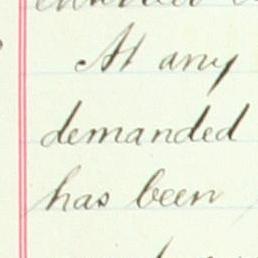 At any
demanded
has been